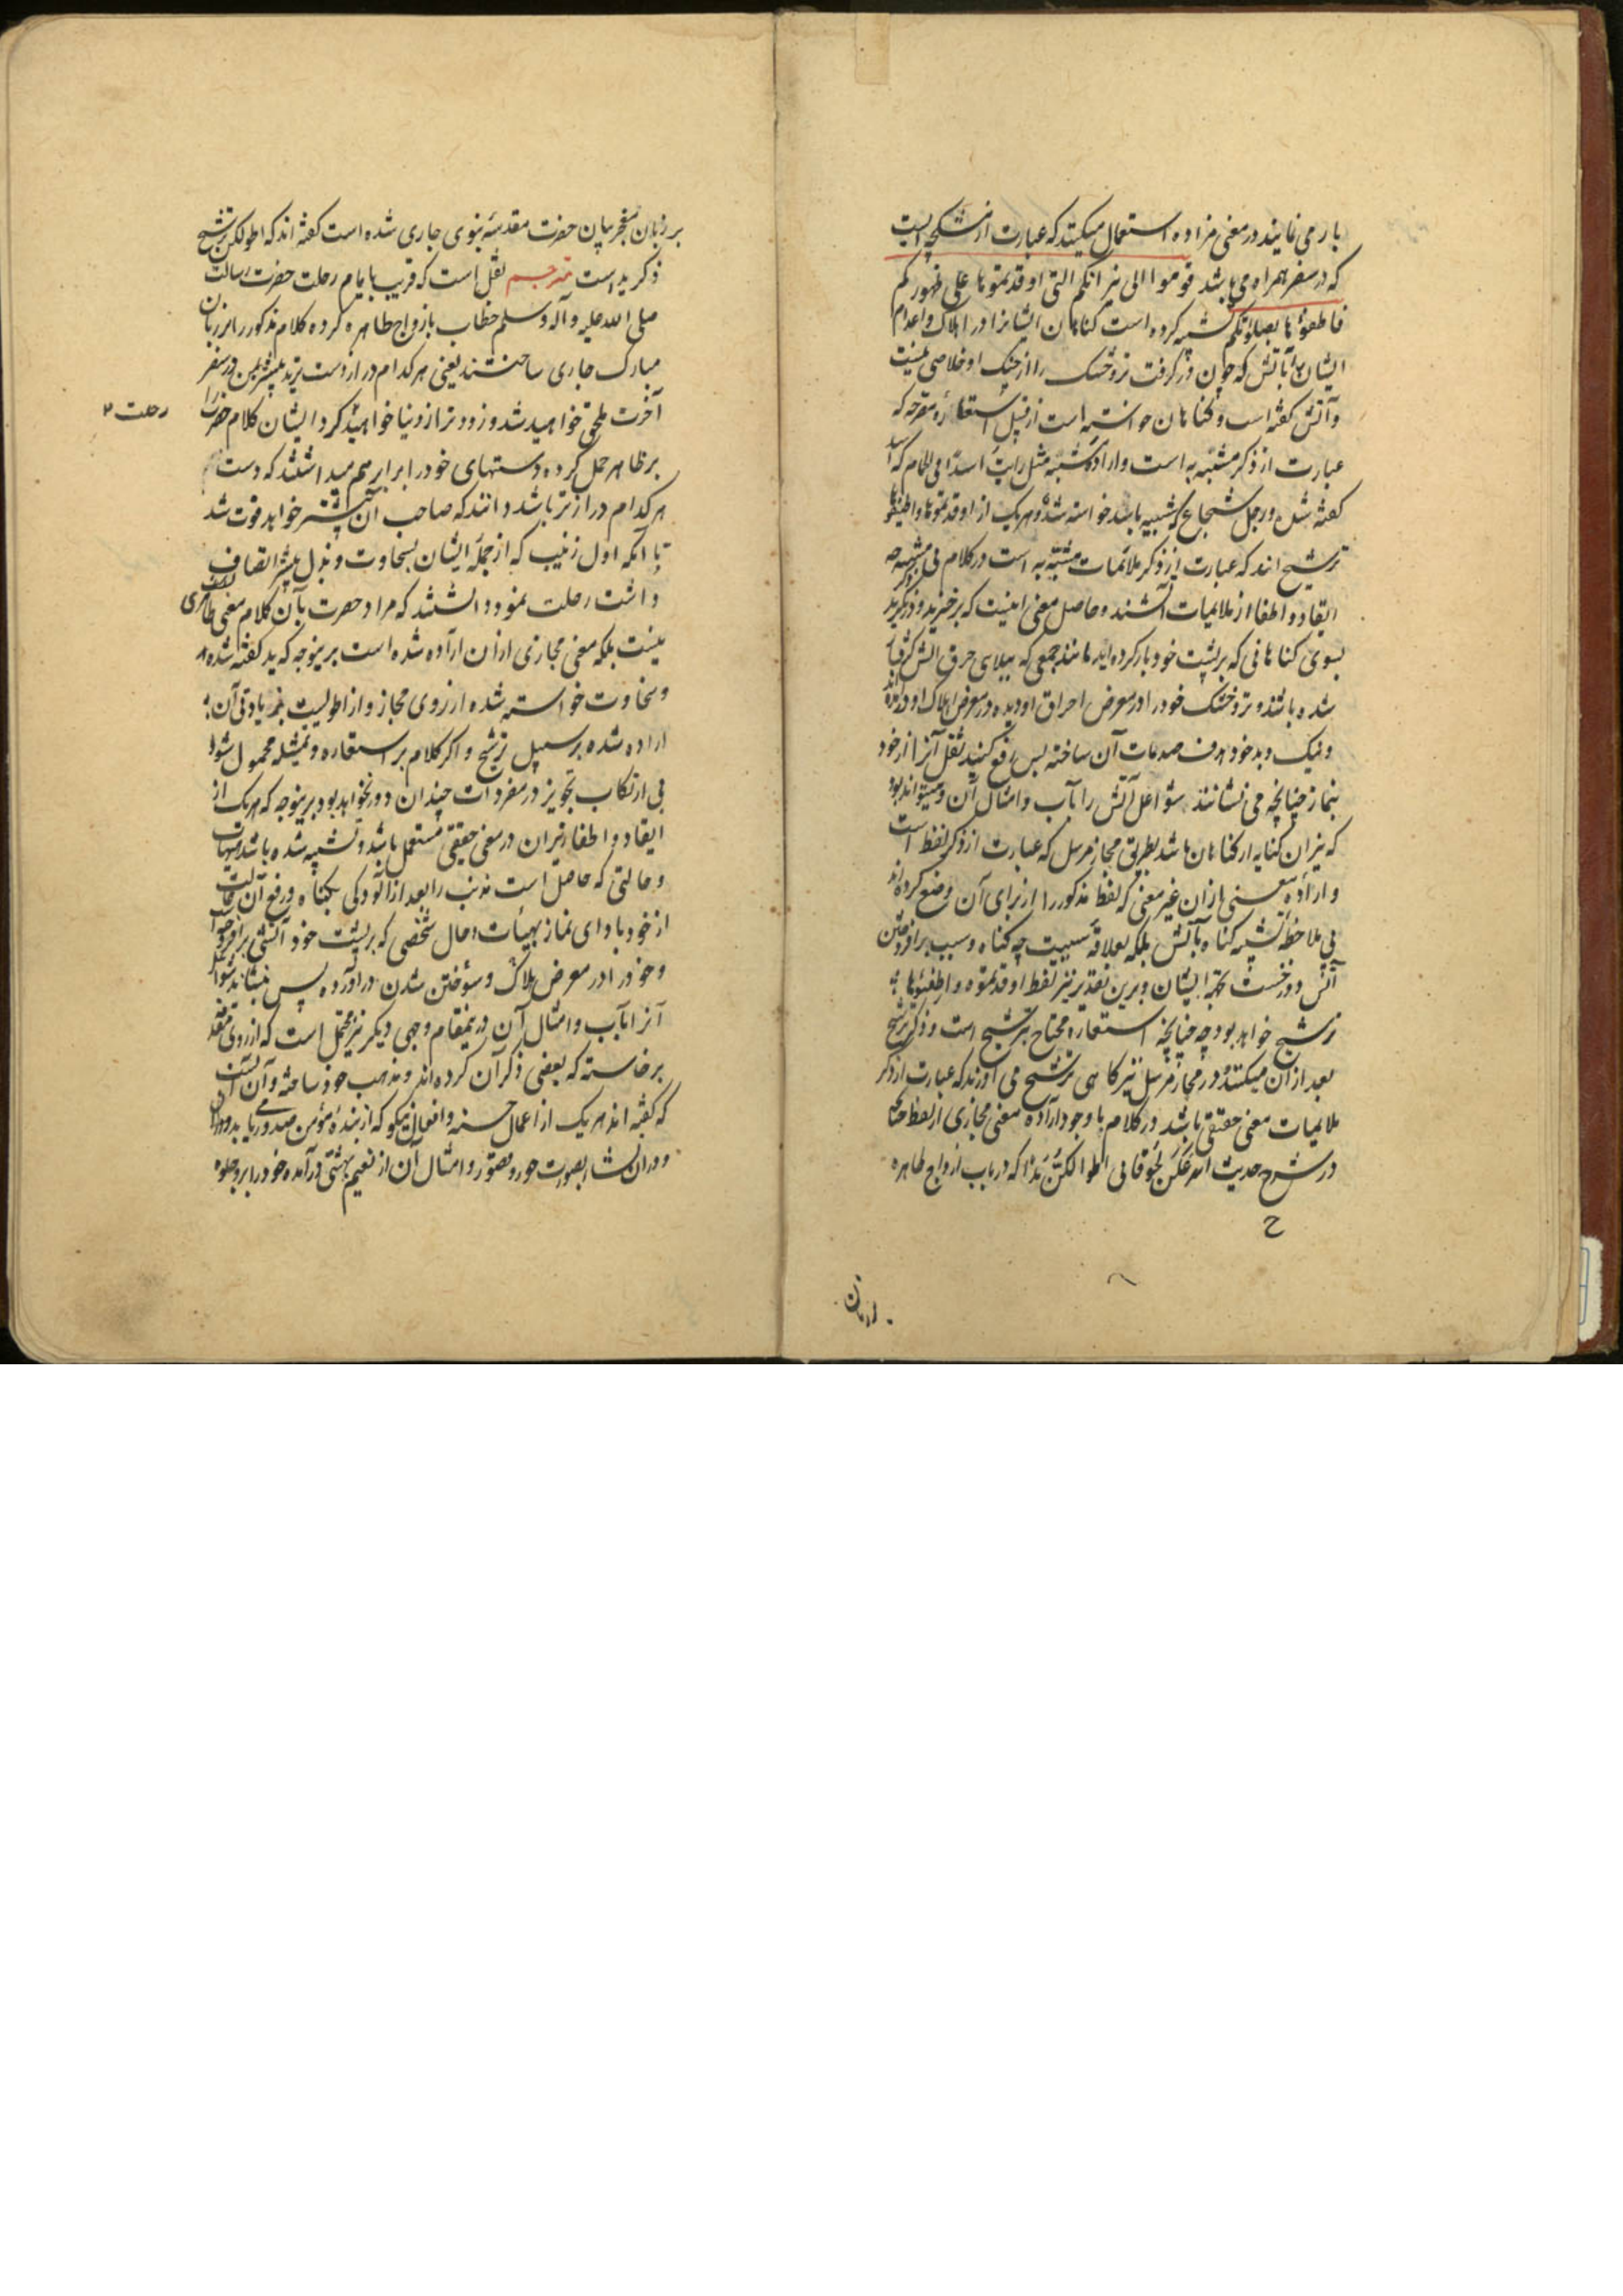 بار می نمایند در معنی مزاده استعمال میکنند که عبارت از مشکچه ایست
که در سفر همراه می باشد قوموا الی نیرانکم التی اوقدتموها علی ظهورکم
فاطفؤها بصلوتکم تشبیه کرده است گناهان ایشانرا در اهلاک و اعدام
ایشان بآتش که چون در گرفت تر و خشک را از چنگ او خلاصی نیست
و آتش گفته است و گناهان خواسته است از قبیل استعاره مصرحه که
عبارت از ذکر مشبه به است و اراده مشبه مثل رایت اسدا فی الحمام که اسد
گفته شده و رجل شجاع که شبیه باسد خواسته شده و هریک از اوقدتموها و اطفؤها
ترشیح اند که عبارت از ذکر ملائمات مشبه به است در کلام
ایقاد و اطفا از ملایمات آتشند و حاصل معنی اینست که برخیزید و
بسوی گناهانی که بر پشت خود بار کرده اید مانند جمعی که ببلای حرق آتش گرفتار
شده باشند و تر و خشک خود را در معرض احراق او دیده در معرض اهلاک او
و نیک و بد خود هدف صدمات آن ساخته پس رفع کنید ثقل آنرا از خود
بنماز چنانچه می نشانند شواعل آتش را بآب و امثال آن و میتواند بود
که نیران کنایه از گناهان باشد بطریق مجاز مرسل که عبارت از ذکر لفظ است
و اراده معنی از آن غیر معنی که لفظ مذکور را از برای آن وضع کرده اند
بی ملاحظه تشبیه گناه بآتش بلکه بعلاقه سببیت چه گناه سبب برافروختن
آتش دوزخست بجهة ایشان و برین تقدیر نیز لفظ اوقدتموه و اطفؤها
ترشیح خواهد بود چه چنانچه استعاره محتاج بترشیح است و ذکر ترشیح
بعد از آن میکنند در مجاز مرسل نیز گاهی ترشیح می آورند که عبارت از ذکر
ملایمات معنی حقیقی باشد در کلام با وجود اراده معنی مجازی از لفظ چنانکه
در شرح حدیث اسرعکن لحوقا بی اطولکن یدا که در باب ازواج طاهره
بر زبان معجز بیان حضرت مقدسه نبوی جاری شده است گفته اند که اطولکن ترشیح
ذکر ید است مترجم نقل است که قریب بایام رحلت حضرت رسالت
صلی الله علیه و آله و سلم خطاب بازواج طاهره کرده کلام مذکور را بر زبان
مبارک جاری ساختند یعنی هر کدام دراز دست ترید پیشتر بمن در سفر
آخرت ملحق خواهید شد و زودتر از دنیا خواهید کرد ایشان کلام حضرت را
رحلت
بر ظاهر حمل کرده دستهای خود را برابر هم میداشتند که دست
هر کدام درازتر باشد دانند که صاحب آن پیشتر خواهد فوت شد
تا آنکه اول زینب که از جمله ایشان بسخاوت و بذل بیشتر اتصاف
داشت رحلت نمود دانستند که مراد حضرت بآن کلام معنی ظاهری
نیست بلکه معنی مجازی از آن اراده شده است برینوجه که ید گفته شده
و سخاوت خواسته شده از روی مجاز و از اطولیت زیادتی آن
اراده شده بر سبیل ترشیح و اگر کلام بر استعاره و تمثیله محمول شود
بی ارتکاب تجویز در مفردات چندان دور نخواهد بود برینوجه که هریک از
ایقاد و اطفا و نیران در معنی حقیقی مستعمل باشد و تشبیه شده باشد
و حالتی که حاصل است مذنب را بعد از آلودگی بگناه و رفع آن
از خود با دای نماز بهیأت و حال شخصی که بر پشت خود آتشی برافروخته
و خود را در معرض هلاک و سوختن شدن در آورده پس بنشاند شواعل
آنرا بآب و امثال آن درینمقام وجهی دیگر نیز محتمل است که از روی
برخاسته که بعضی ذکر آن کرده اند و مذهب خود ساخته و آن
که گفته اند هریک از اعمال حسنه و افعال نیکو که از بنده مؤمن صدور می یابد
و در آن نشاء بصورت حور و قصور و امثال آن از نعیم بهشتی درآمده خود را برو جلوه